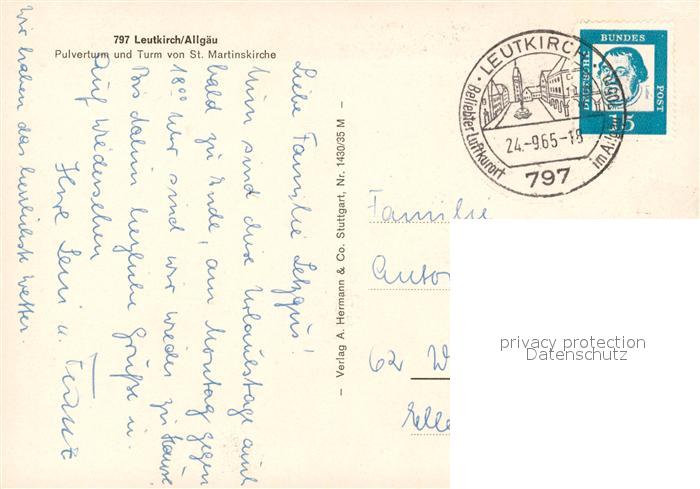 797 Leutkirch/Allgäu
Pulverturm und Turm von St. Martinskirche
Liebe Familie Letzgus!
Nun sind diese Urlaubstage auch
bald zu Ende, am Montag gegen
18⁰⁰ Uhr sind wir wieder zu Hause
Bis dahin herzliche Grüße u.
Auf Wiedersehen
Ihre Leni u.
Wir haben das herrlichste Wetter.
– Verlag A. Hermann & Co. Stuttgart, Nr. 1430/35 M –
· LEUTKIRCH ·
Beliebter Luftkurort
im Allgäu
24.-9.65-18
797
DEUTSCHE
BUNDES
POST
15
Familie
62 W
privacy protection
Datenschutz